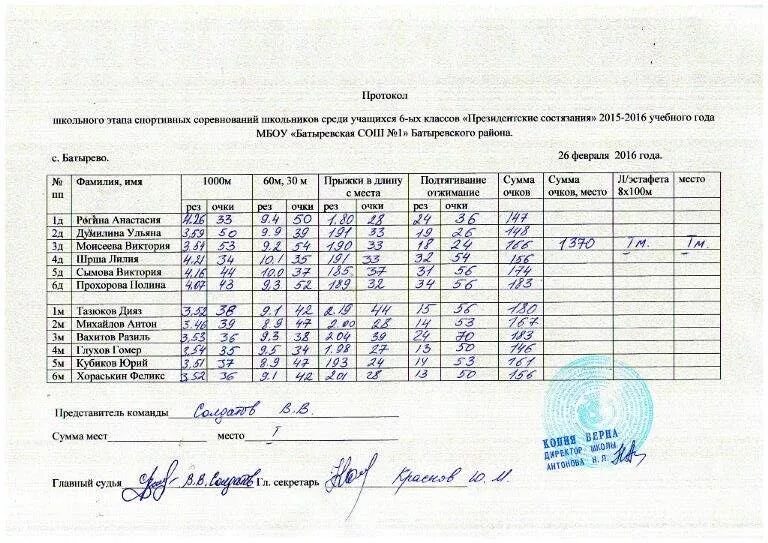 Протокол
школьного этапа спортивных соревнований школьников среди учащихся 6-ых классов «Президентские состязания» 2015-2016 учебного года
МБОУ «Батыревская СОШ №1» Батыревского района.
с. Батырево. 26 февраля 2016 года.
№ пп Фамилия, имя 1000м 60м, 30 м Прыжки в длину с места Подтягивание отжимание Сумма очков Сумма очков, место Л/эстафета 8х100м место
рез очки рез очки рез очки рез очки
1д Регина Анастасия 4.26 33 9.4 50 1.80 28 24 36 147
2д Думилина Ульяна 3.59 50 9.9 39 191 33 19 26 148
3д Моисеева Виктория 3.51 53 9.2 54 190 33 18 24 166 1370 I м. I м.
4д Шрша Лилия 4.21 34 10.1 35 191 33 32 54 156
5д Сымова Виктория 4.16 44 10.0 37 185 37 31 56 174
6д Прохорова Полина 4.07 43 9.3 52 189 32 34 56 183
1м Тазюков Дияз 3.52 38 9.1 42 2.19 44 15 56 180
2м Михайлов Антон 3.46 39 8.9 47 2.00 28 14 53 167
3м Вахитов Разиль 3.53 36 9.3 38 204 39 24 70 183
4м Глухов Гомер 3.54 35 9.5 34 1.98 27 13 50 146
5м Кубиков Юрий 3.51 37 8.9 47 193 24 14 53 161
6м Хораськин Феликс 3.52 36 9.1 42 201 28 13 50 156
Представитель команды Солдатов В.В.
Сумма мест место I
КОПИЯ ВЕРНА
ДИРЕКТОР ШКОЛЫ
АНТОНОВА Н.Л.
Главный судья В.В. Солдатов Гл. секретарь Краснов Ю.М.